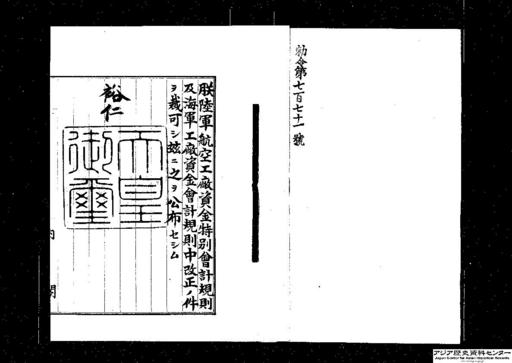 勅令第七百七十一號
朕陸軍航空工廠資金特別會計規則
及海軍工廠資金會計規則中改正ノ件
ヲ裁可シ茲ニ之ヲ公布セシム
裕仁
天皇
御璽
内閣
アジア歴史資料センター
Japan Center for Asian Historical Records